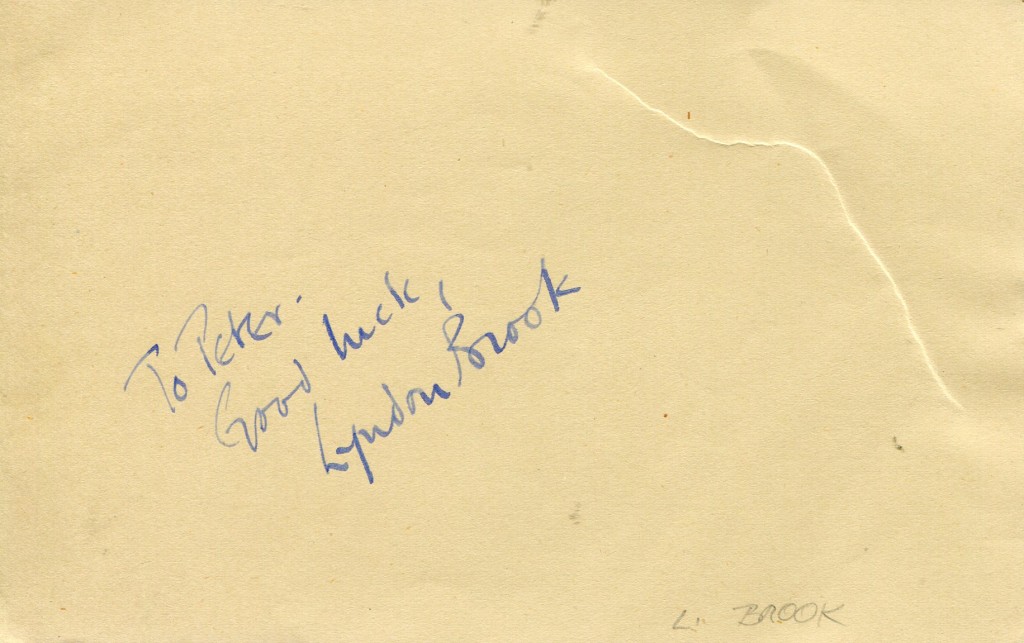 To Peter.
Good luck,
Lyndon Brook
L. BROOK